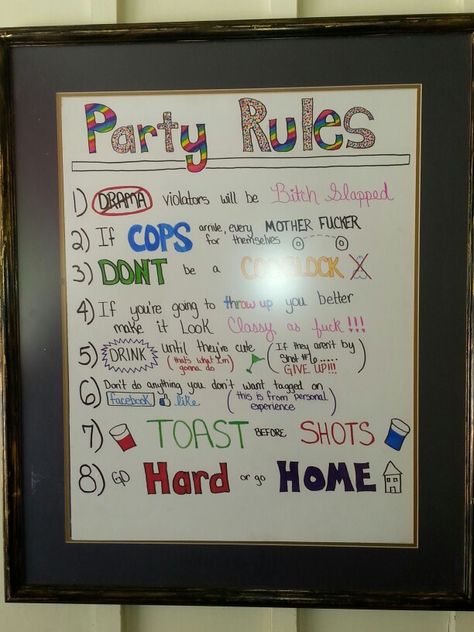 Party Rules
1) DRAMA violators will be Bitch Slapped
2) If COPS arrive, every MOTHER FUCKER
for themselves
3) DON'T be a
4) If you're going to throw up you better
make it look Classy as fuck!!!
5) DRINK until they're cute (If they aren't by
(that's what I'm gonna do) shot #6......
GIVE UP!!!)
6) Don't do anything you don't want tagged on
facebook like (this is from personal
experience)
7) TOAST BEFORE SHOTS
8) GO Hard or go HOME